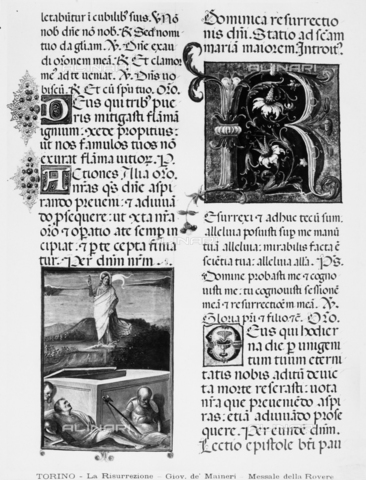 letabūtur ī cubilib' suis. V. Nō
nob dn̄e nō nob. R. Sed nomi
tuo da gl̄am. V. Dn̄e exau
di orōnem meā. R. Et clamor
me ad te veniat. V. Dn̄s vo
biscū. R. Et cū spū tuo. Orō.
Deus qui trib' pue
ris mitigasti flāmā
ignium: cede propitius:
ut nos famulos tuos nō
exurat flāma vitior. P.
Actiones
nr̄as qs dn̄e aspi
rando preveni: et adiuvā
do psequere: ut cūcta nr̄a
orō et opatio a te semp in
cipiat et p te cepta finia
tur. Per dnm nrm.
Dominica resurrectio
nis dn̄i. Statio ad sc̄am
mariā maiorem. Introit'.
R
Esurrexi et adhuc tecū sum.
alleluia posuisti sup me manū
tuā alleluia: mirabilis facta ē
sciētia tua: alleluia alla. Ps.
Domine probasti me et cogno
visti me: tu cognovisti sessionē
meā et resurrectiōem meā. V.
Gloria pri et filio et c. Orō.
Deus qui hodier
na die p unigeni
tum tuum eterni
tatis nobis aditū devic
ta morte reserasti: vota
nr̄a que preveniēdo aspi
ras: etiā adiuvādo prose
quere. Per eundē dnm.
Lectio epistole bti pau
ALINARI
ALINARI
TORINO - La Risurrezione - Giov. de' Maineri Messale della Rovere